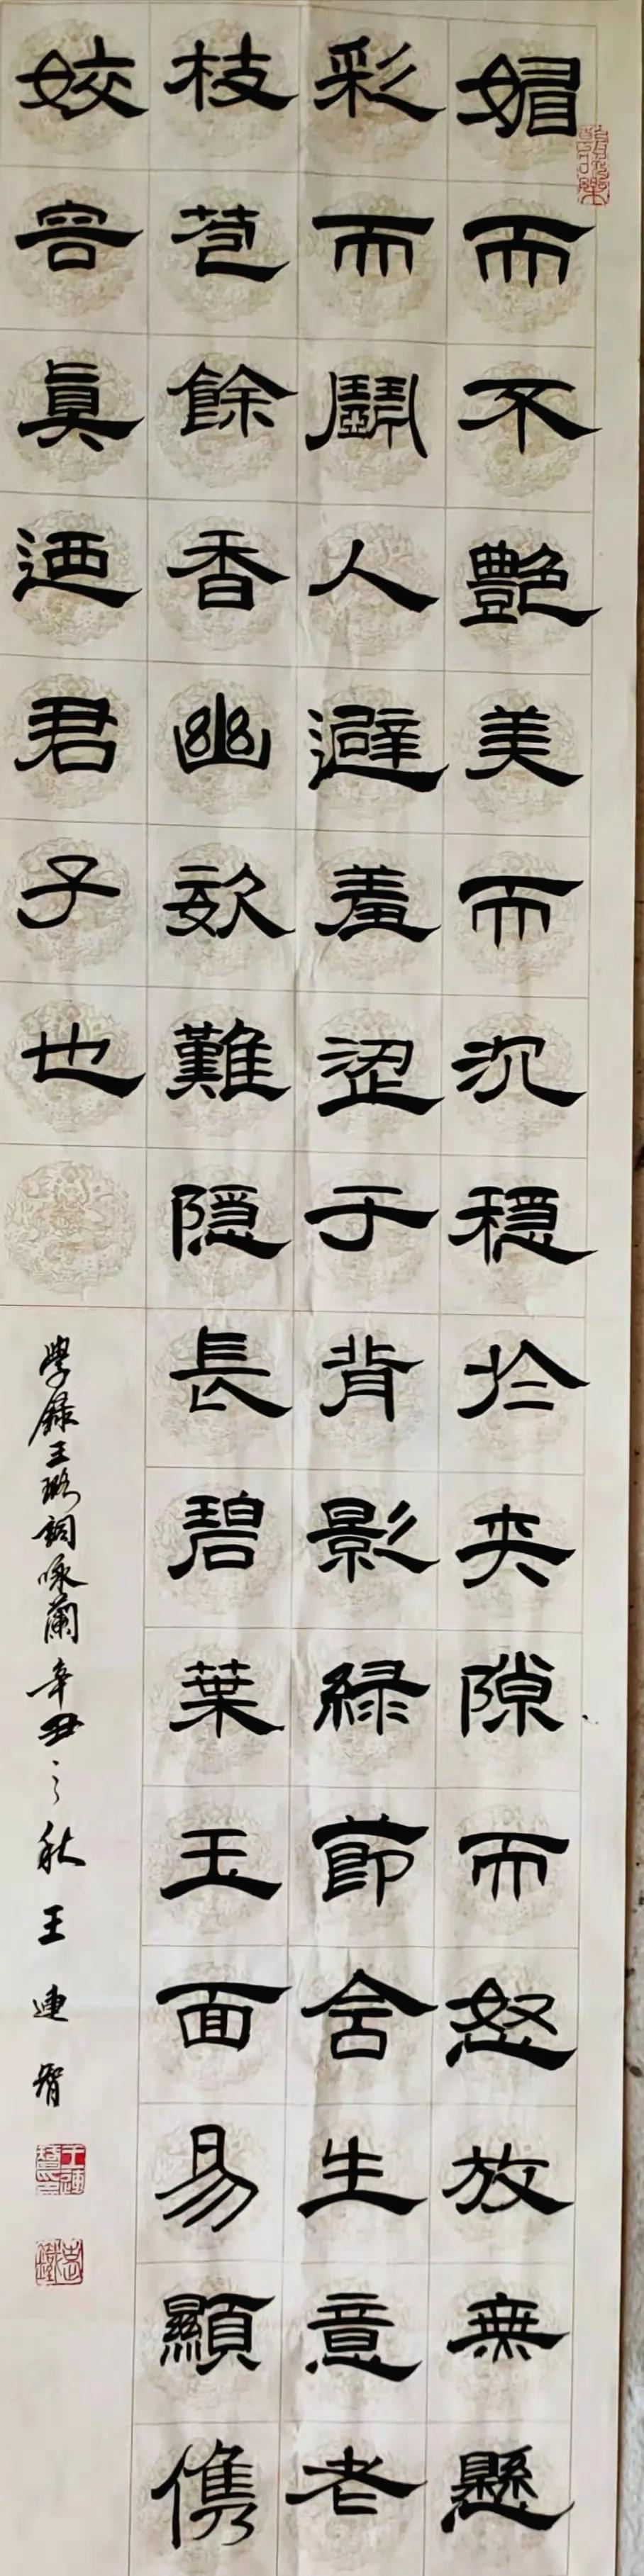 媚而不艷美而沉穩於夾隙而怒放無懸
彩而鬭人避羞涩于背影緑節含生意老
枝苞餘香幽欬難隱長碧葉玉面易顯儁
姣容真迺君子也
學錄王璐詞咏蘭辛丑之秋王連智